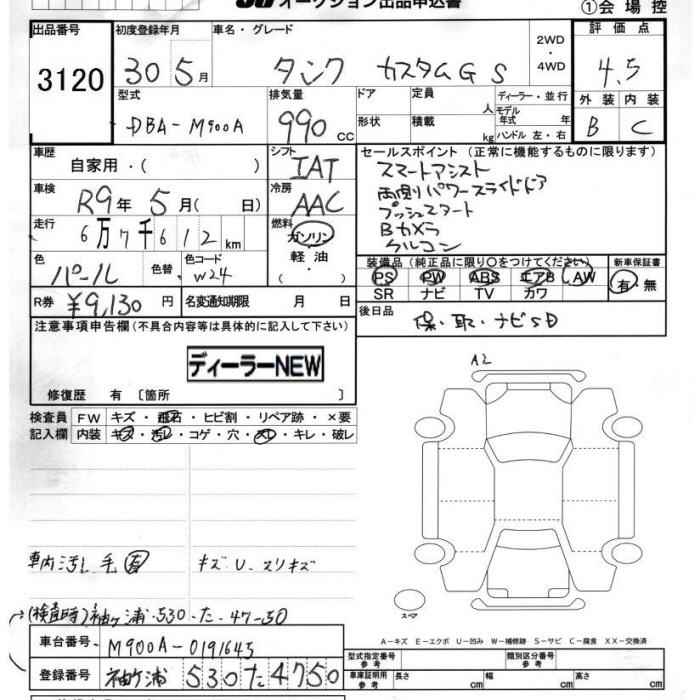 オークション出品申込書
①会場控
出品番号 3120
初度登録年月 30 5月
車名・グレード タンク カスタムG S
2WD・4WD
評価点 4.5
外装 B 内装 C
型式 DBA-M900A
排気量 990 CC
ドア 形状
定員 人
積載 kg
ディーラー・並行
モデル年式 年
ハンドル 左・右
車歴 自家用・( )
シフト IAT
車検 R9年 5月( 日)
冷房 AAC
走行 6万7千612km
燃料 ガソリン・軽油・( )
色 パール 色替
色コード W24
R券 ¥9,130円
名変通知期限 月 日
セールスポイント (正常に機能するものに限ります)
スマートアシスト
両側パワースライドドア
プッシュスタート
Bカメラ
クルコン
装備品 (純正品に限り○をつけてください)
PS PW ABS エアB AW
SR ナビ TV カワ
新車保証書 有・無
後日品 保・取・ナビSD
注意事項申告欄(不具合内容等は具体的に記入して下さい)
ディーラーNEW
修復歴 有〔箇所 〕
検査員記入欄
FW キズ・飛石・ヒビ割・リペア跡・×要
内装 キズ・汚れ・コゲ・穴・スレ・キレ・破レ
A2
車内汚レ毛有 キズU スリキズ
スペア
(検査時)袖ヶ浦・530・た・47-50
車台番号 M900A-0191645
登録番号 袖ヶ浦 530 た 4750
A-キズ E-エクボ U-凹み W-補修跡 S-サビ C-腐食 XX-交換済
型式指定番号 参考
類別区分番号 参考
車庫証明用 参考 長さ cm 幅 cm 高さ cm